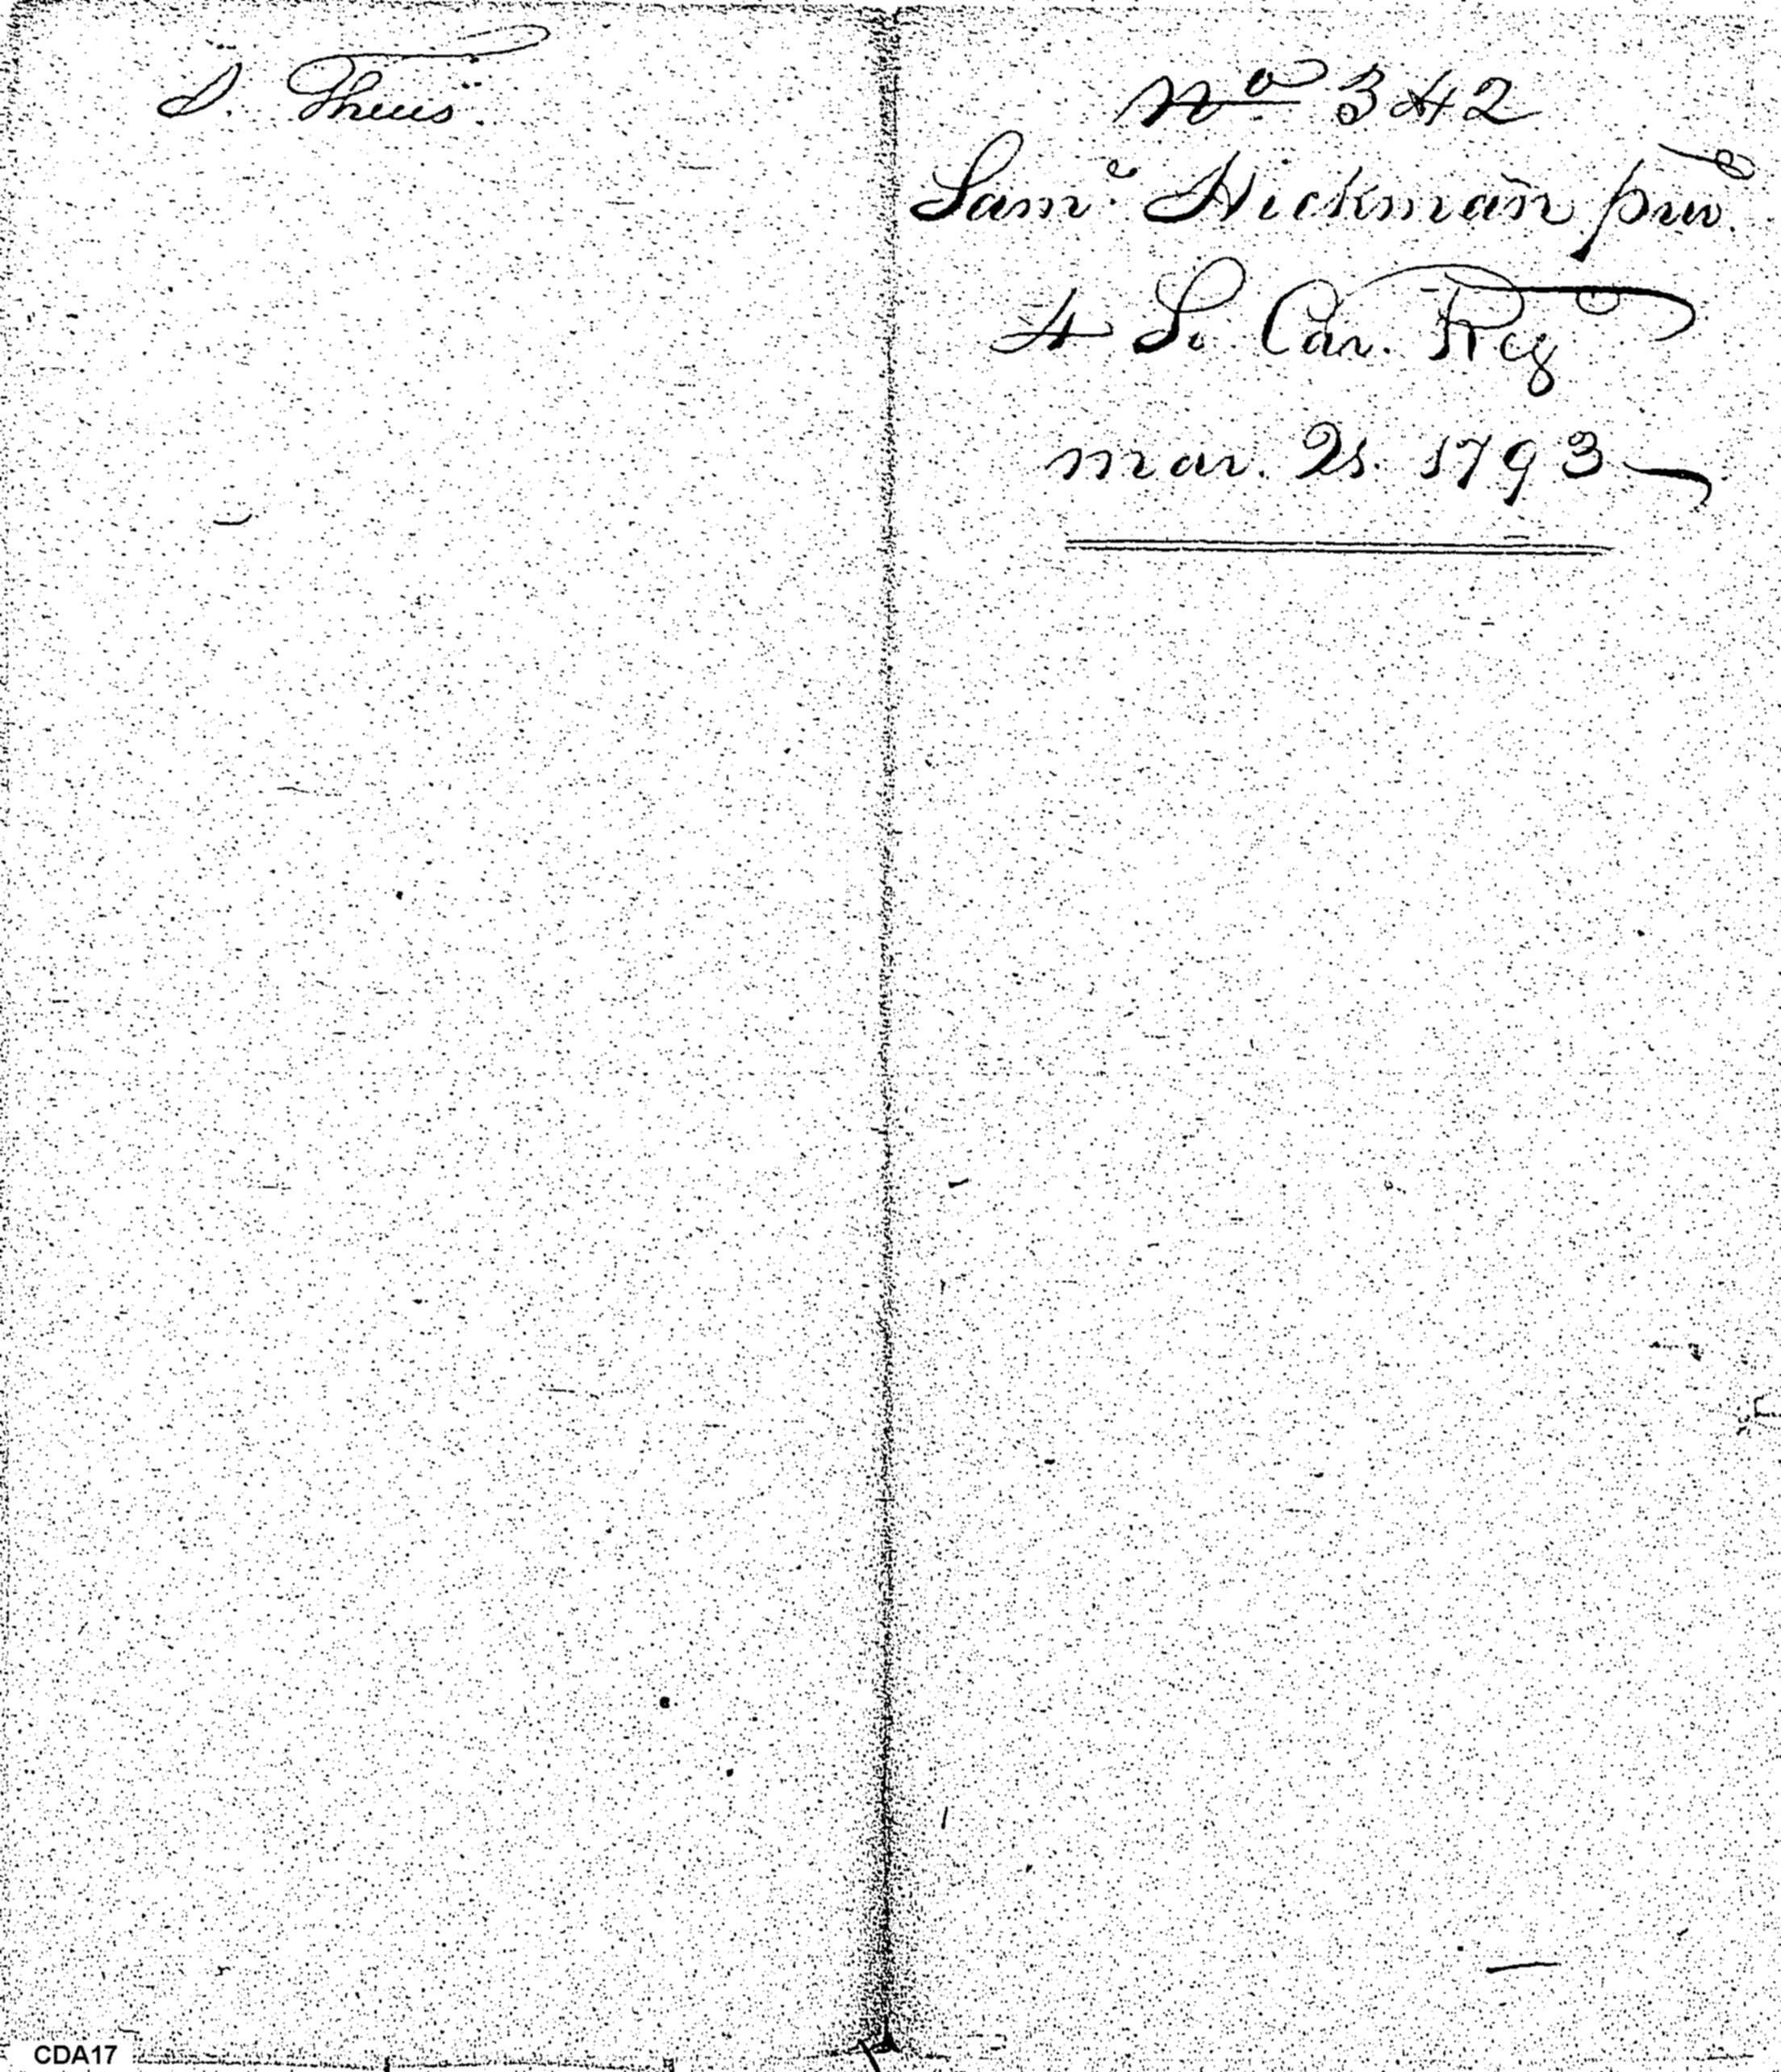 S. Theus.
No 342
Saml. Hickman priv.
4 So. Car. Reg
Mar. 21. 1793
CDA17